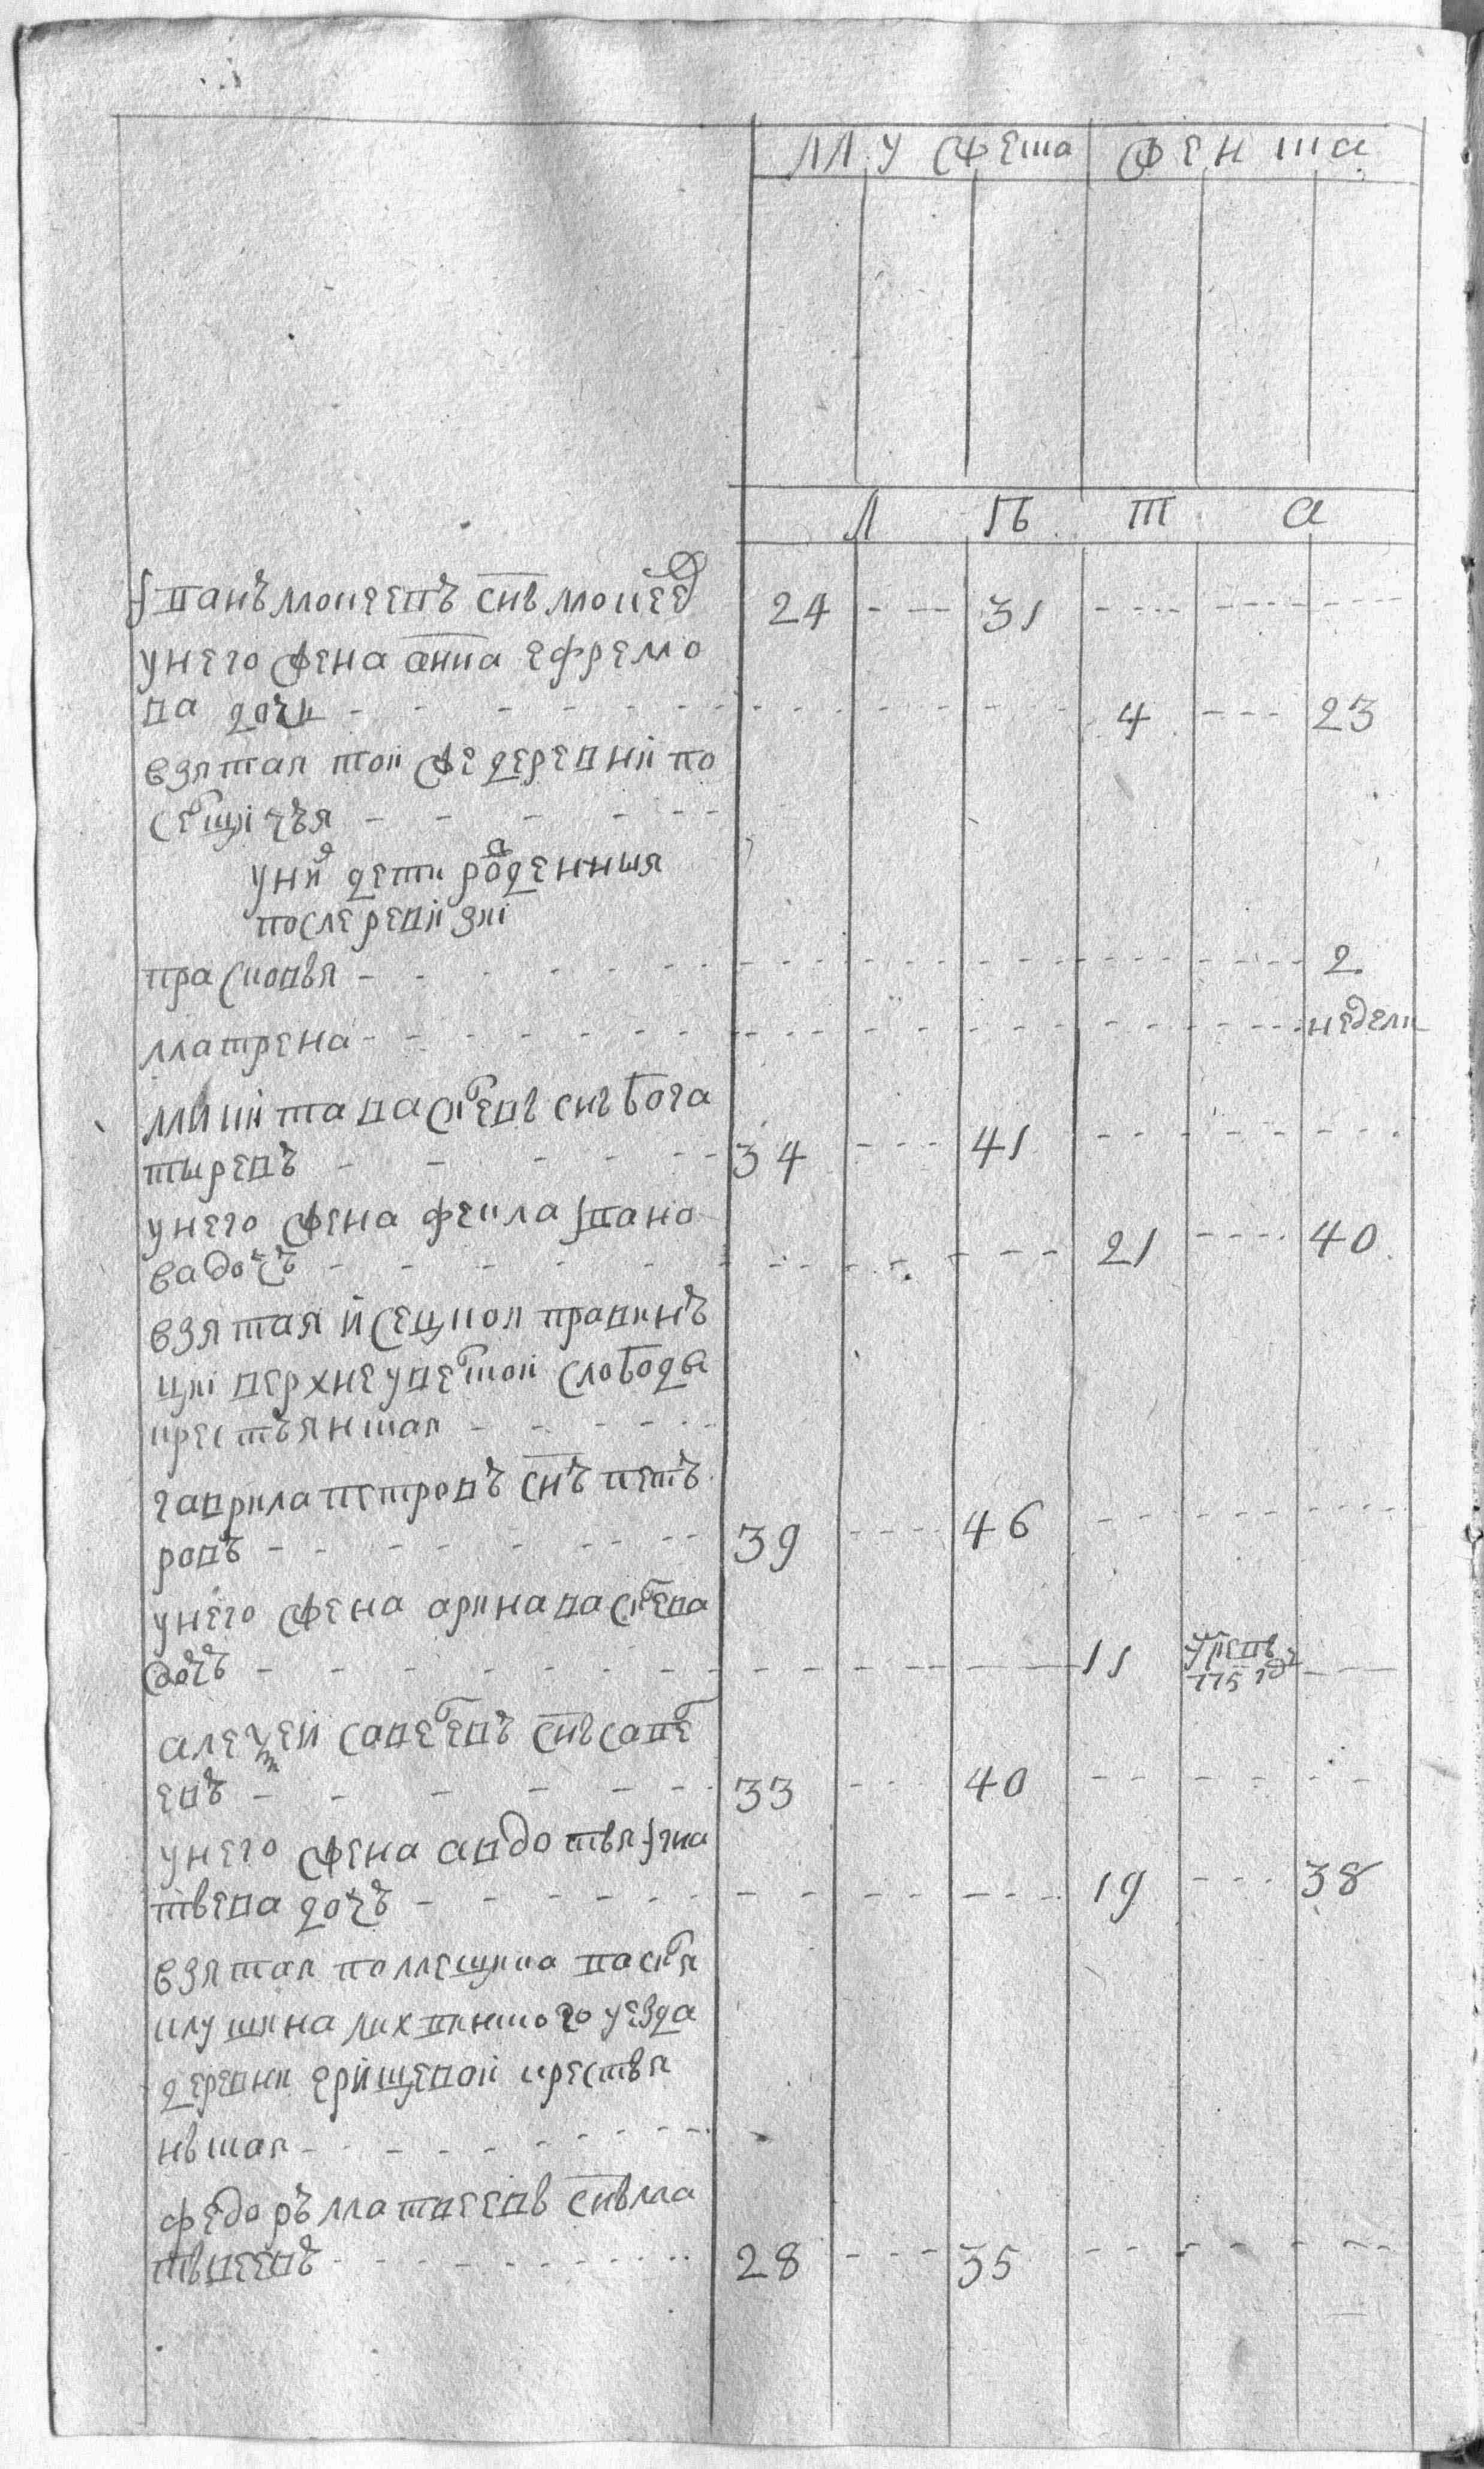 му жеска женска
л ѣ т а
Iванъ мокеевъ снъ мокеев
у него жена анна ефремо
ва дочь - - - 4 - - - 23
24 - - - 31
взятая той же деревни по
сельщичья
у них дети рожденныя
после ревизиi
прасковья - - - 2
матрена - - - недели
микита васильевъ снъ бога
тыревъ - - - 34 - - - 41
у него жена фекла Iвано
ва дочь - - - 21 - - - 40
взятая исецкой правинъ
цiи верхнеувельской слободы
крестьянская
гаврила петровъ снъ петъ
ровъ - - - 39 - - - 46
у него жена арина васильева
дочь - - - 11
алексей савельевъ снъ савель
евъ - - - 33 - - - 40
у него жена авдотья Iгна
тьева дочь - - - 19 - - - 38
взятая помещика василья
клушина лихвинского уезда
деревни грищевой крестья
нская
федоръ матвеевъ снъ ма
твеевъ - - - 28 - - - 35